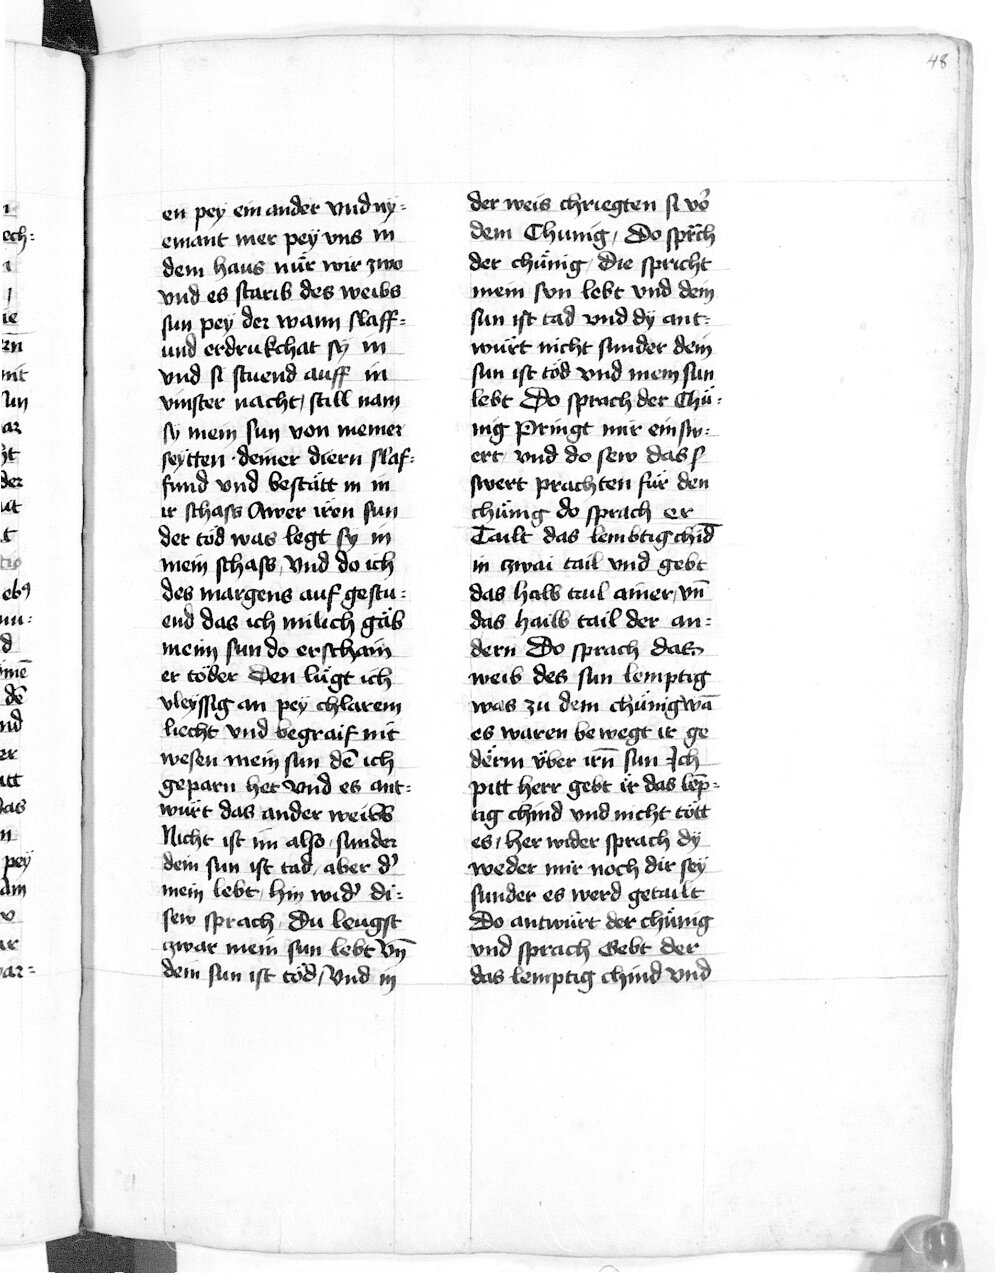 48
en pey ein ander vnd ny=
emant mer pey vns in
dem haus nür wir zwo
vnd es starib des weibs
sun pey der wann slaff=
und erdrukchat sy in
vnd si stuend auff in
vinster nacht / still nam
sy mein sun von meiner
seytten · deiner diern slaf=
fund vnd bestätt in in
ir schass Awer iren sun
der töd was legt sy in
mein schass / vnd do ich
des margens auf gestu=
end das ich milich gäb
mein sun do erschain
er töder Den lügt ich
vleyssig an pey chlarem
liecht vnd begraif nit
wesen mein sun dē ich
geparn het vnd es ant=
würt das ander weibs
Nicht ist im also / sunder
dein sun ist tad / aber d'
mein lebt / hin wid' di=
sew sprach / Du leugst
zwar mein sun lebt vn̄
dein sun ist töd / vnd in
der weis chriegten si vō
dem Chunig / Do sprch
der chünig / Die spricht
mein sun lebt vnd dein
sun ist tad vnd dy ant=
würt nicht sunder dein
sun ist töd vnd mein sun
lebt Do sprach der Chü=
nig Pringt mir ein sw=
ert / vnd do sew das s
swert prachten für den
chünig do sprach er
Tailt das lembtig chīd
in zwai tail vnd gebt
das halb tail ainer / vn̄
das halb tail der an=
dern Do sprach das
weib des sun lemptig
was zu dem chünig wā
es waren bewegt ir ge
dërm vber irn̄ sun Ich
pitt herr gebt ir das lēp=
tig chind vnd nicht tött
es / her wider sprach dy
weder mir noch dir sey
sunder es werd getailt
Do antwürt der chünig
vnd sprach Gebt der
das lemptig chind vnd